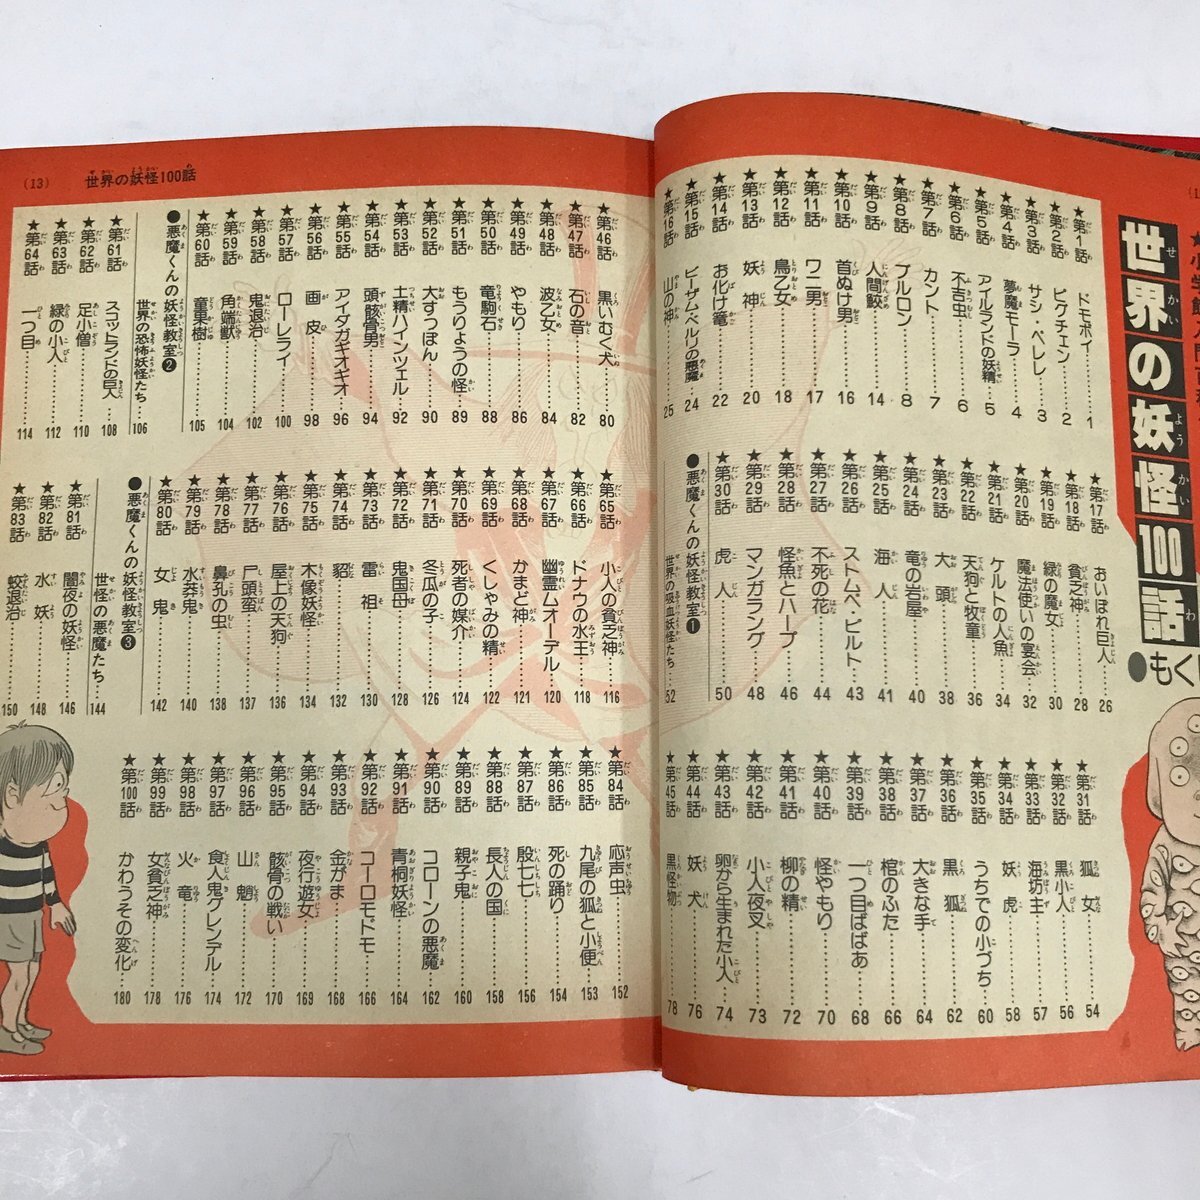 世界の妖怪100話
●もくじ
★第1話 ドモボイ……1
★第2話 ピケチェン……2
★第3話 サシ・ペレレ……3
★第4話 夢魔モーラ……4
★第5話 アイルランドの妖精……5
★第6話 不吉虫……6
★第7話 カント……7
★第8話 ブルロン……8
★第9話 人間鮫……14
★第10話 首ぬけ男……16
★第11話 ワニ男……17
★第12話 鳥乙女……18
★第13話 妖神……20
★第14話 お化け篭……22
★第15話 ビーザム・ベルリの悪魔……24
★第16話 山の神……25
★第17話 おいぼれ巨人……26
★第18話 貧乏神……28
★第19話 緑の魔女……30
★第20話 魔法使いの宴会……32
★第21話 ケルトの人魚……34
★第22話 天狗と牧童……36
★第23話 大頭……38
★第24話 竜の岩屋……40
★第25話 海人……41
★第26話 ストムペ・ピルト……43
★第27話 不死の花……44
★第28話 怪魚とハープ……46
★第29話 マンガラング……48
★第30話 虎人……50
●悪魔くんの妖怪教室❶
世界の吸血妖怪たち……52
★第31話 狐女……54
★第32話 黒小人……56
★第33話 海坊主……57
★第34話 妖虎……58
★第35話 うちでの小づち……60
★第36話 黒狐……62
★第37話 大きな手……64
★第38話 棺のふた……66
★第39話 一つ目ばばあ……68
★第40話 怪やもり……70
★第41話 柳の精……72
★第42話 小人夜叉……73
★第43話 卵から生まれた小人……74
★第44話 妖犬……76
★第45話 黒怪物……78
(13) 世界の妖怪100話
★第46話 黒いむく犬……80
★第47話 石の音……82
★第48話 波乙女……84
★第49話 やもり……86
★第50話 竜駒石……88
★第51話 もうりょうの怪……89
★第52話 大すっぽん……90
★第53話 土精ハインツェル……92
★第54話 頭骸骨男……94
★第55話 アイダガキオギオ……96
★第56話 画皮……98
★第57話 ローレライ……100
★第58話 鬼退治……102
★第59話 角端獣……104
★第60話 童果樹……105
●悪魔くんの妖怪教室❷
世界の恐怖妖怪たち……106
★第61話 スコットランドの巨人……108
★第62話 足小僧……110
★第63話 緑の小人……112
★第64話 一つ目……114
★第65話 小人の貧乏神……116
★第66話 ドナウの水王……118
★第67話 幽霊ムオーデル……120
★第68話 かまど神……121
★第69話 くしゃみの精……122
★第70話 死者の媒介……124
★第71話 冬瓜の子……126
★第72話 鬼国母……128
★第73話 雷祖……130
★第74話 貂……132
★第75話 木像妖怪……134
★第76話 屋上の天狗……136
★第77話 尸頭蛮……137
★第78話 鼻孔の虫……138
★第79話 水莽鬼……140
★第80話 女鬼……142
●悪魔くんの妖怪教室❸
世怪の悪魔たち……144
★第81話 闇夜の妖怪……146
★第82話 水妖……148
★第83話 蛟退治……150
★第84話 応声虫……152
★第85話 九尾の狐と小便……153
★第86話 死の踊り……154
★第87話 殷七七……156
★第88話 長人の国……158
★第89話 親子鬼……160
★第90話 コローンの悪魔……162
★第91話 青桐妖怪……164
★第92話 コーロモゥドモ……166
★第93話 金がま……168
★第94話 夜行遊女……169
★第95話 骸骨の戦い……170
★第96話 山魈……172
★第97話 食人鬼グレンデル……174
★第98話 火竜……176
★第99話 女貧乏神……178
★第100話 かわうその変化……180